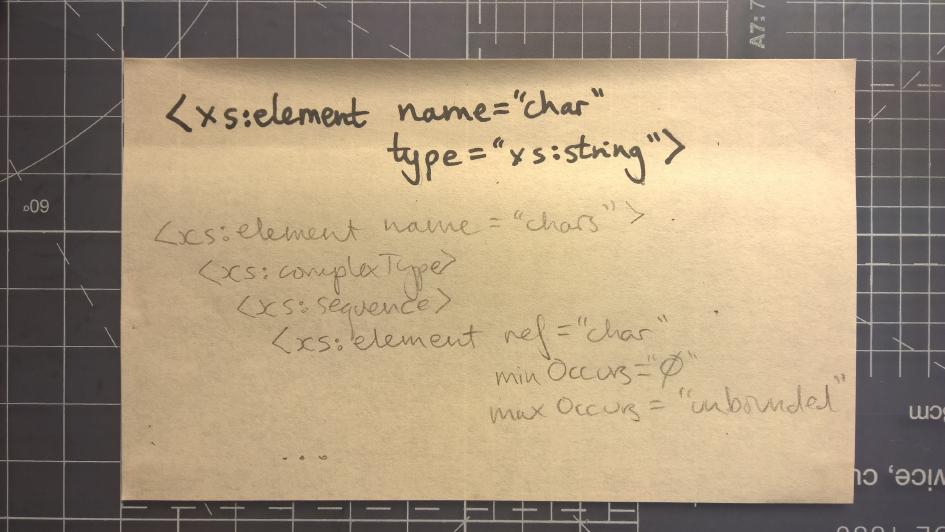 <xs:element name="char"
type="xs:string">
<xs:element name="chars">
<xs:complexType>
<xs:sequence>
<xs:element ref="char"
minOccurs="Ø"
maxOccurs="unbounded"
...
A7:7
60°
3cm